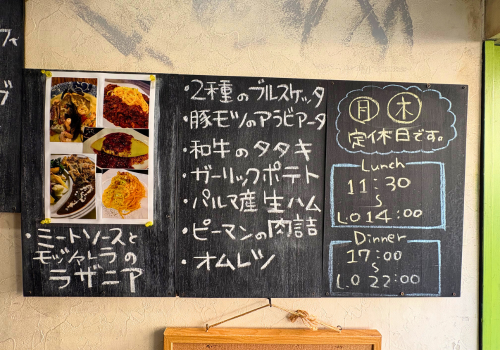 ・ミートソースと
モッツァレラの
ラザニア
・2種のブルスケッタ
・豚モツのアラビアータ
・和牛のタタキ
・ガーリックポテト
・パルマ産生ハム
・ピーマンの肉詰
・オムレツ
月 木
定休日です。
Lunch
11:30
S
L.O 14:00
Dinner
17:00
S
L.O 22:00